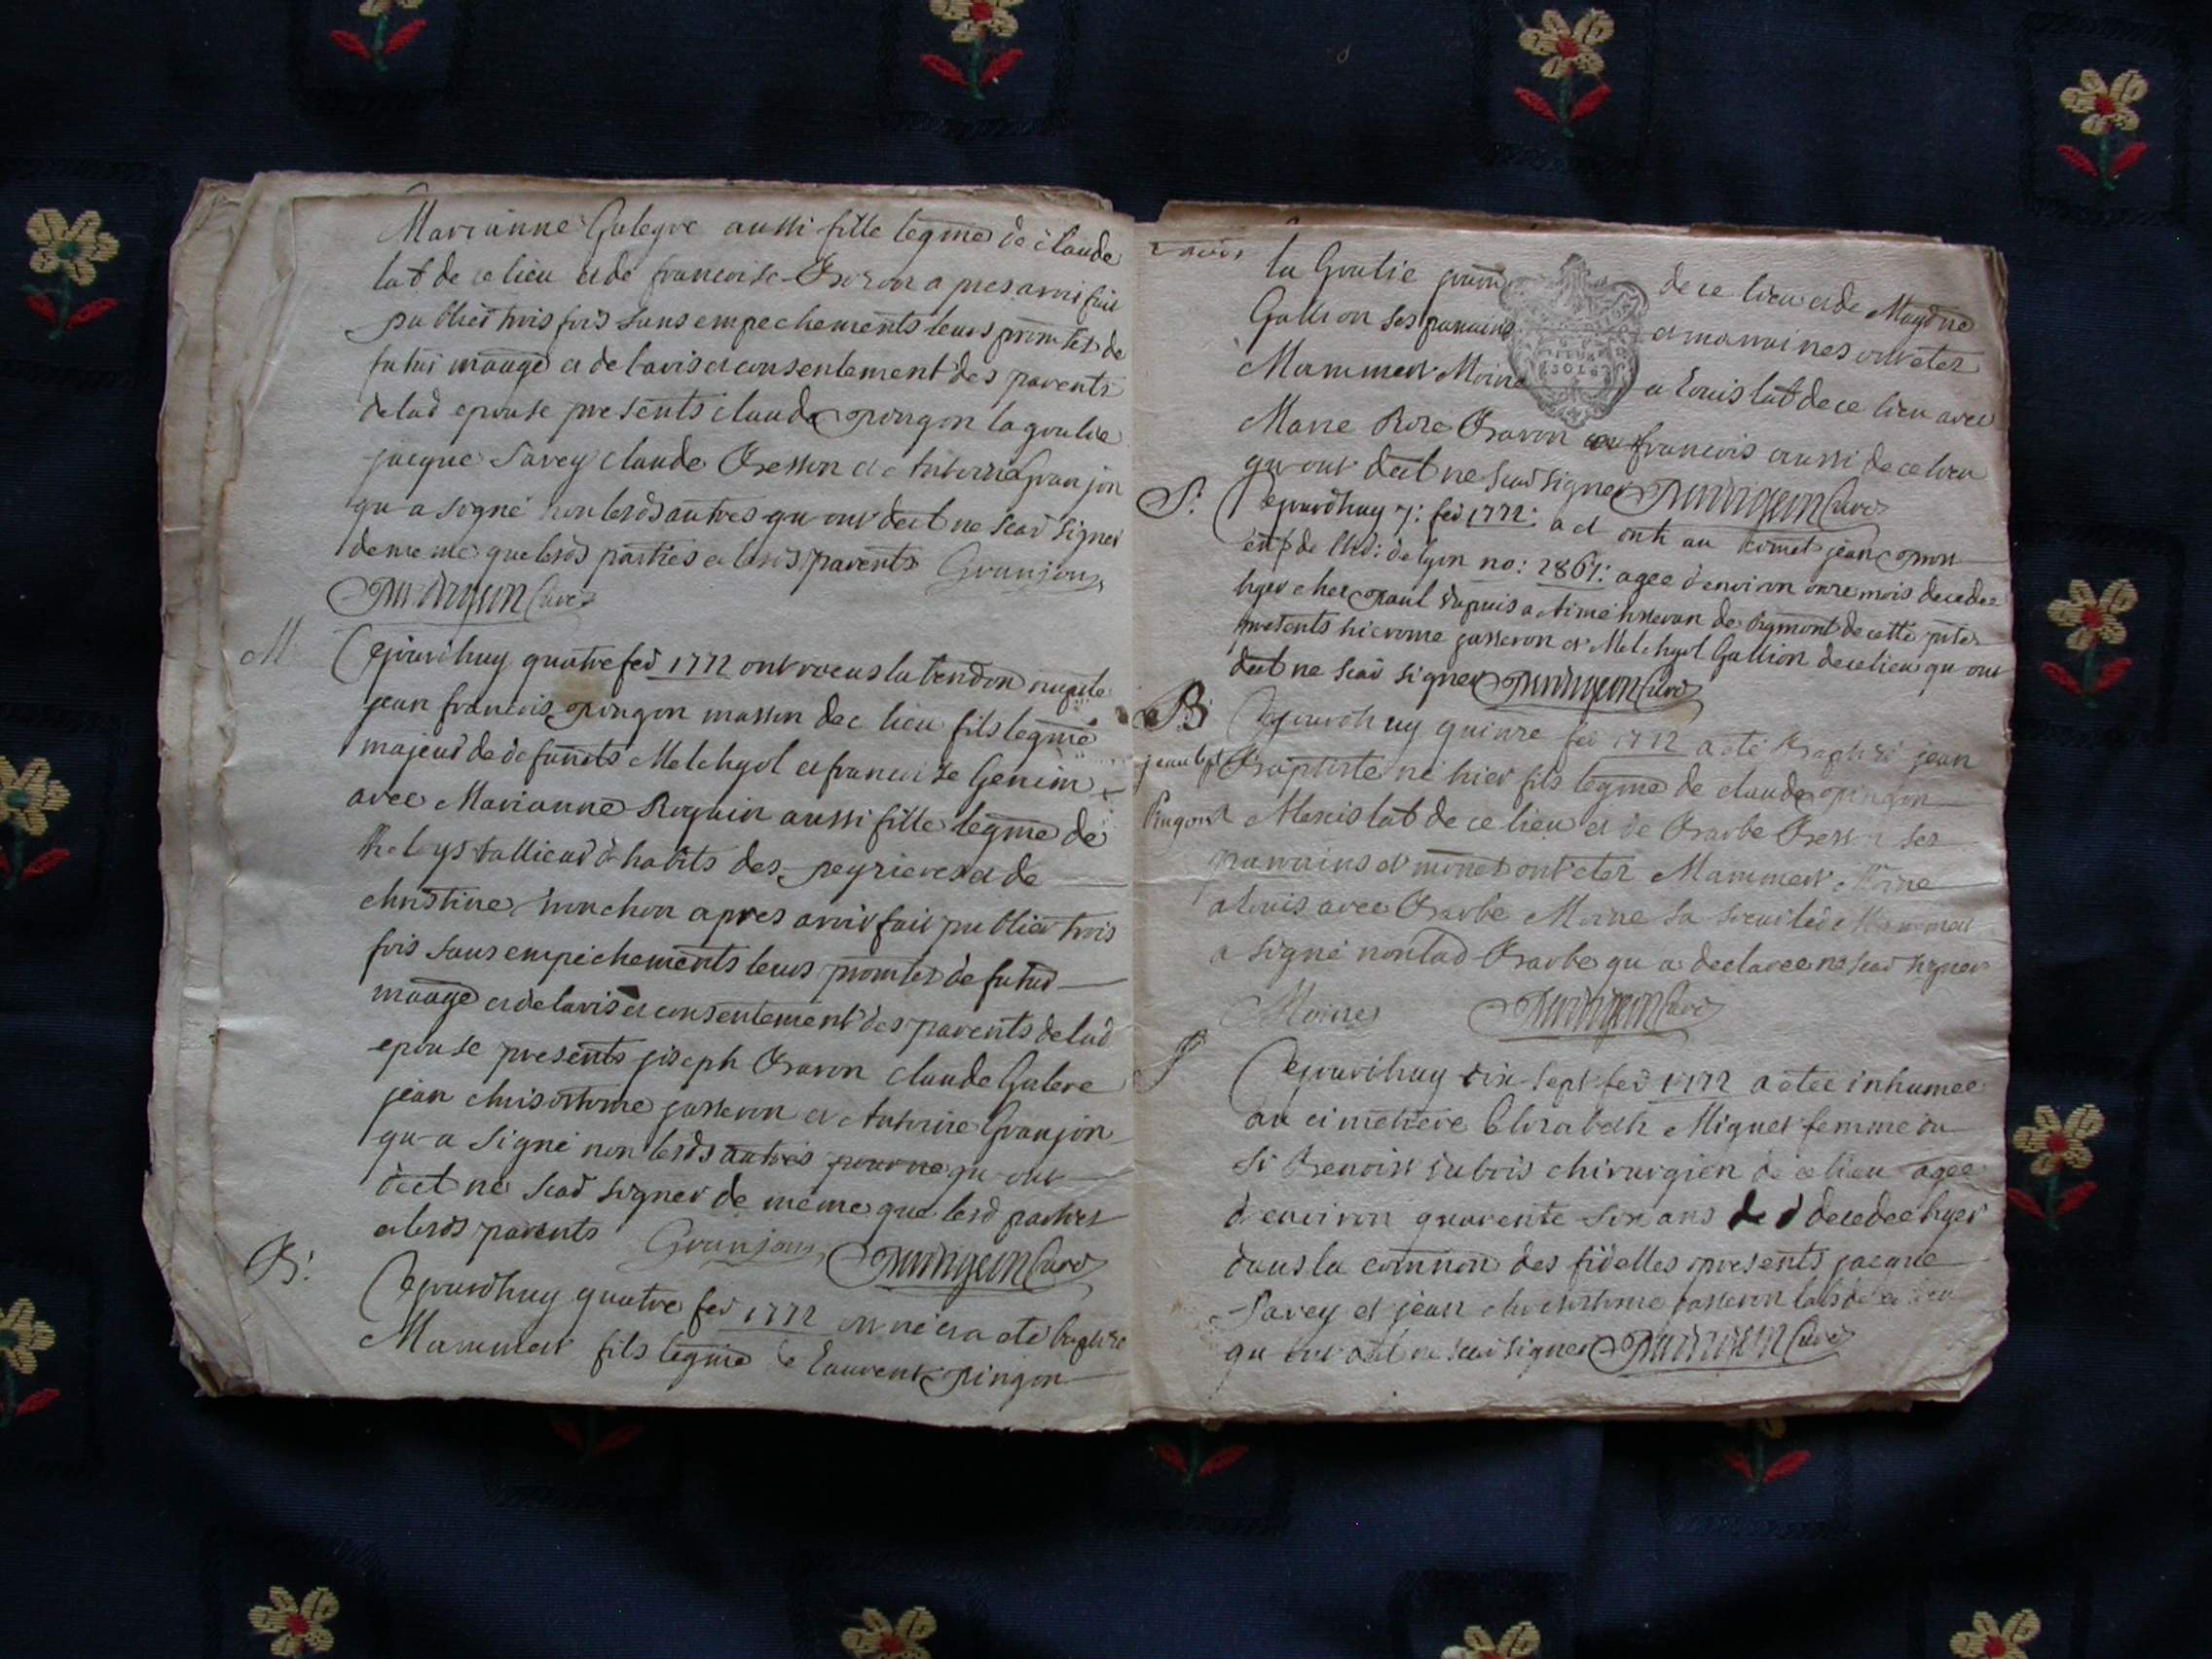 Marianne Galeyre aussi fille legme de claude
lab de ce lieu et de francoise Baron apres avoir fait
publier trois fois sans empechements leurs promes de
futur mãage et de lavis et consentement des parents
delad epouse presents claude pingon la goulie
jacque Savey claude Besson et Antoine Granjon
qu a signé non lesds autres qu ont declt ne scavd signer
de meme que lesds parties et lesds parents Granjon
curé
M Cejourdhuy quatre fev 1772 ont receus la bendon nuptle
jean francois pingon masson de c lieu fils legme
majeur de defuncts Melchyol et francoise Genim
avec Marianne Roquin aussi fille legme de
tallieur d habits des peyrieres et de
christine apres avoir fait publier trois
fois sans empechements leurs promes de futur
mãage et de lavis et consentement des parents delad
epouse presents joseph Baron claude Galere
jean chrisostome jasseron et Antoine Granjon
qu a signé non lesds autres pour ne qu ont
declt ne scavd signer de meme que lesd parties
et lesds parents Granjon curé
B: Cejourdhuy quatre fev 1772 est né et a eté baptisé
Mammert fils legme de Laurent pingon
la Goulie de ce lieu et de Magdne
Gallion ses parains et marraines ont eter
Mammert Moine a Louis lab de ce lieu avec
Marie Rose Baron francois aussi de ce lieu
qu ont declt ne scavd signer curé
S: Cejourdhuy 7: fev 1772: a et enté au cimet jean
enf de lhd: de lyon no: 2867: agee d environ onze mois decedee
hyer chez paul dupuis de cette
presents hierome jasseron et Melchyol Gallion de ce lieu qu ont
declt ne scavd signer curé
B Cejourdhuy quinze fev 1772 a eté baptisé jean
jean bpt Baptiste né hier fils legme de claude pingon
Pingon Alexis lab de ce lieu et de Barbe Besson ses
parrains et mones ont eter Mammert Moine
a louis avec Barbe Moine sa soeur led Mammert
a signé non lad Barbe qu a declaree ne scavd signer
Moine curé
S Cejourdhuy dix sept fev 1772 a etee inhumee
au cimetiere Elizabeth Miguet femme du
Sr Benoist dubois chirurgien de ce lieu agee
d environ quarente six ans decedee hyer
dans la comnion des fidelles presents jacque
Savey et jean chrisostome jasseron labs de ce lieu
qu ont declt ne scavd signer curé